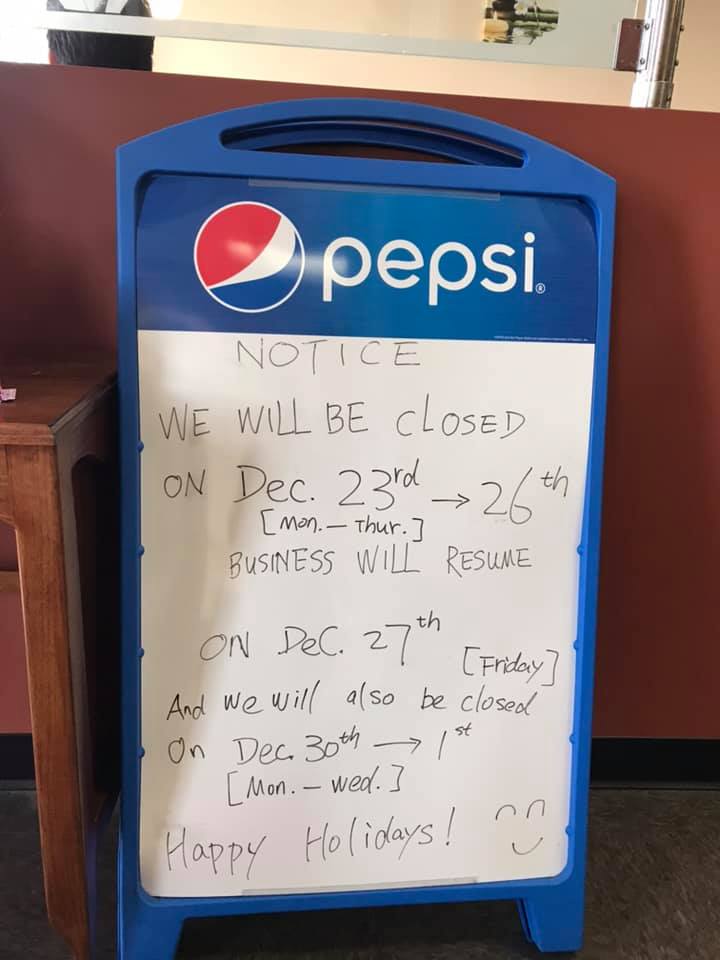 pepsi®
NOTICE
WE WILL BE CLOSED
ON Dec. 23rd → 26th
[Mon. — Thur.]
BUSINESS WILL RESUME
ON DEC. 27th
[Friday]
And we will also be closed
On Dec. 30th → 1st
[Mon. — Wed.]
Happy Holidays!